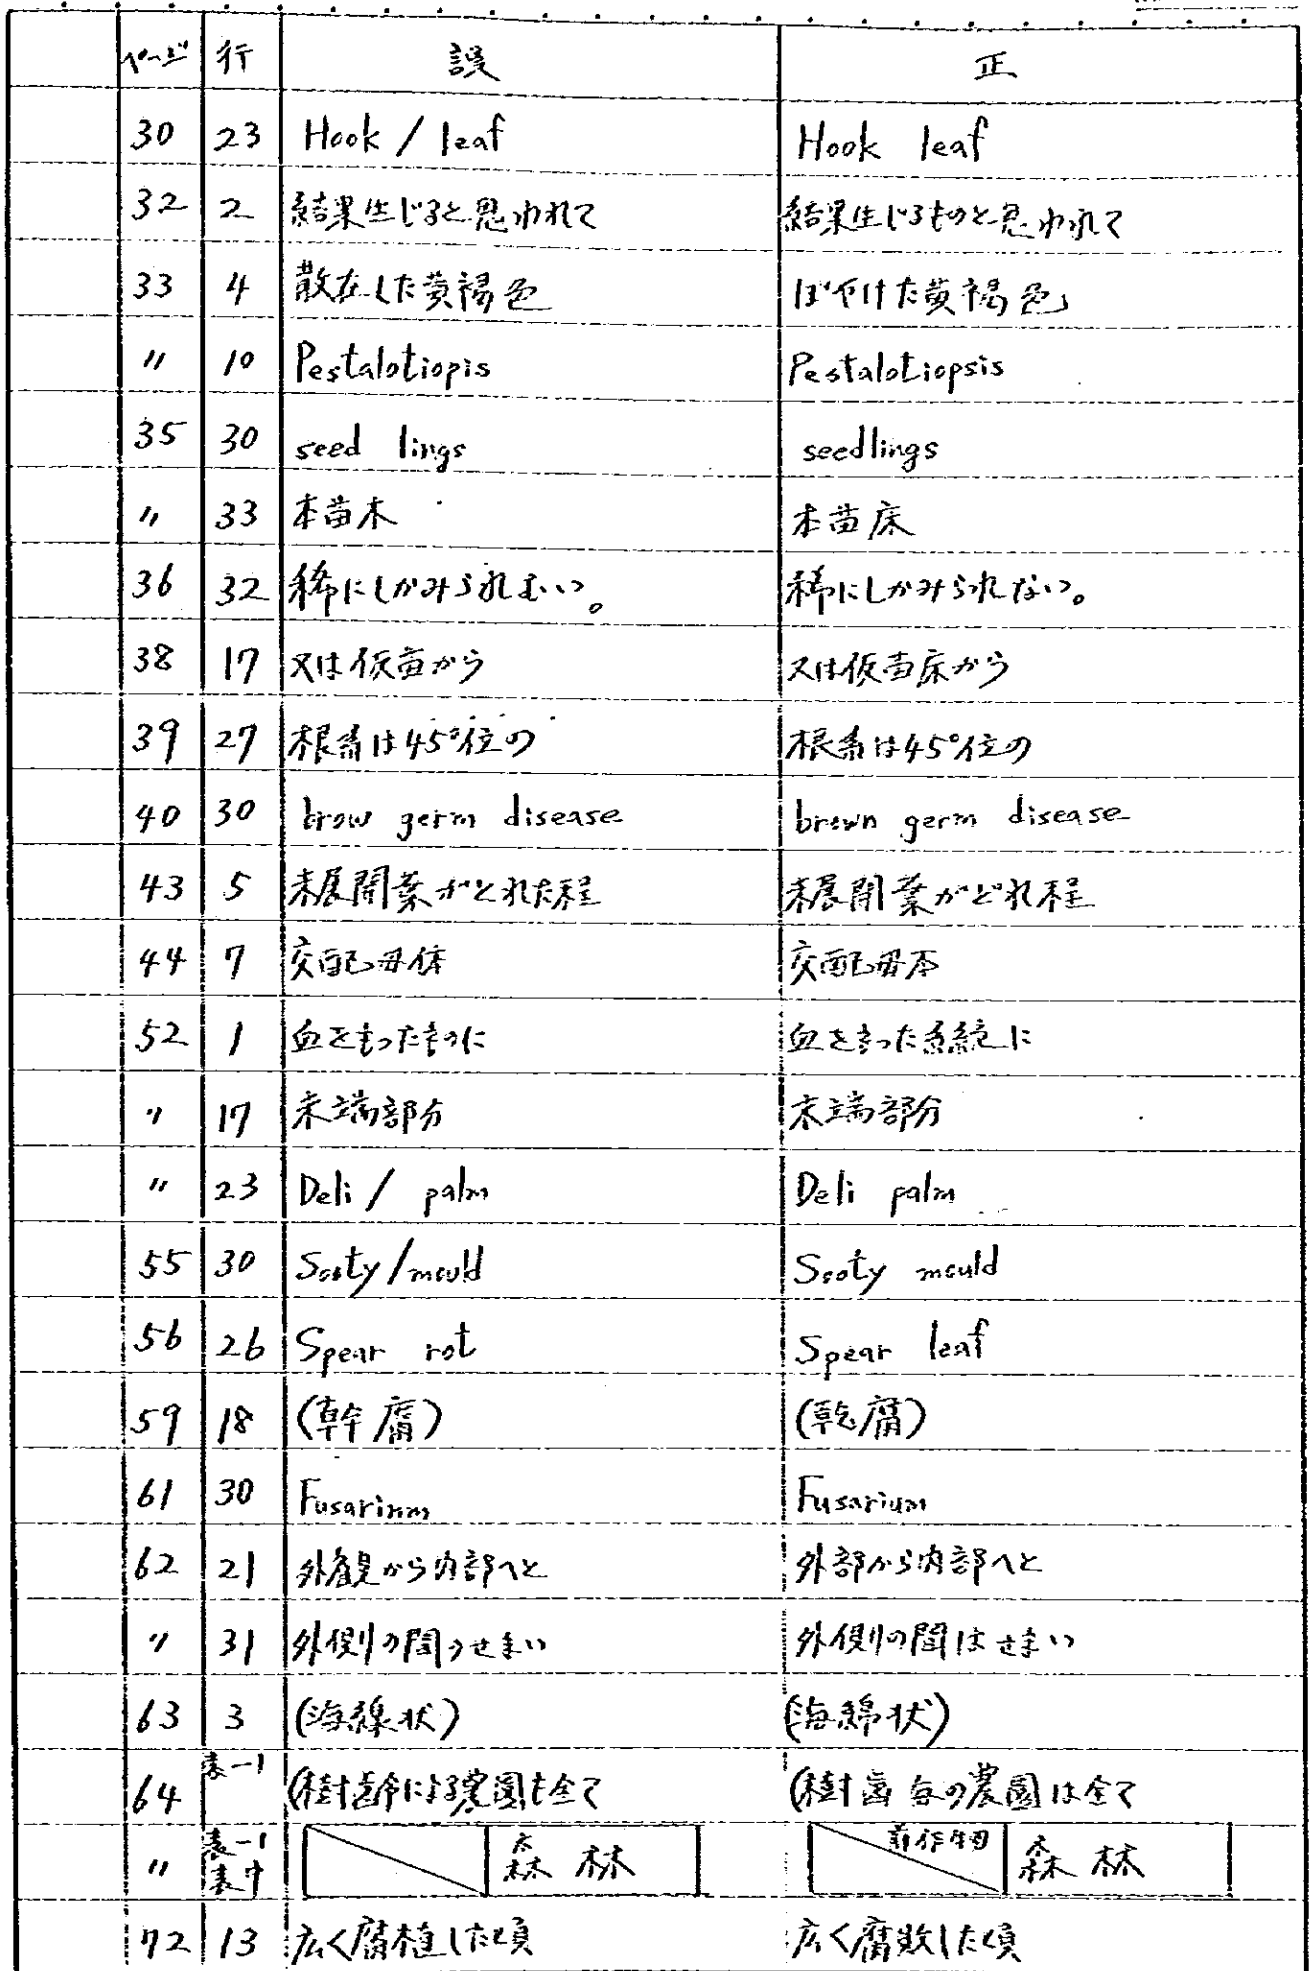 ページ 行 誤 正
30 23 Hook / leaf Hook leaf
32 2 結果生じると思われて 結果生じるものと思われて
33 4 散在した黄褐色 ぼやけた黄褐色
〃 10 Pestalotiopis Pestalotiopsis
35 30 seed lings seedlings
〃 33 本苗木 本苗床
36 32 稀にしかみられむい。 稀にしかみられない。
38 17 又は仮苗から 又は仮苗床から
39 27 根系は45°位の 根系は45°位の
40 30 brow germ disease brown germ disease
43 5 未展開葉がとれた程 未展開葉がどれ程
44 7 交配母体 交配母本
52 1 血をもったものに 血をもった系統に
〃 17 未端部分 末端部分
〃 23 Deli / palm Deli palm
55 30 Sooty / mould Sooty mould
56 26 Spear rot Spear leaf
59 18 (幹腐) (乾腐)
61 30 Fusarinm Fusarium
62 21 外観から内部へと 外部から内部へと
〃 31 外側の間のせまい 外側の間はせまい
63 3 (海線状) (海綿状)
64 表-1 (樹齢による農園も全て (樹齢毎の農園は全て
〃 表-1 森林 前作物 森林
表中
72 13 広く腐植した頃 広く腐敗した頃